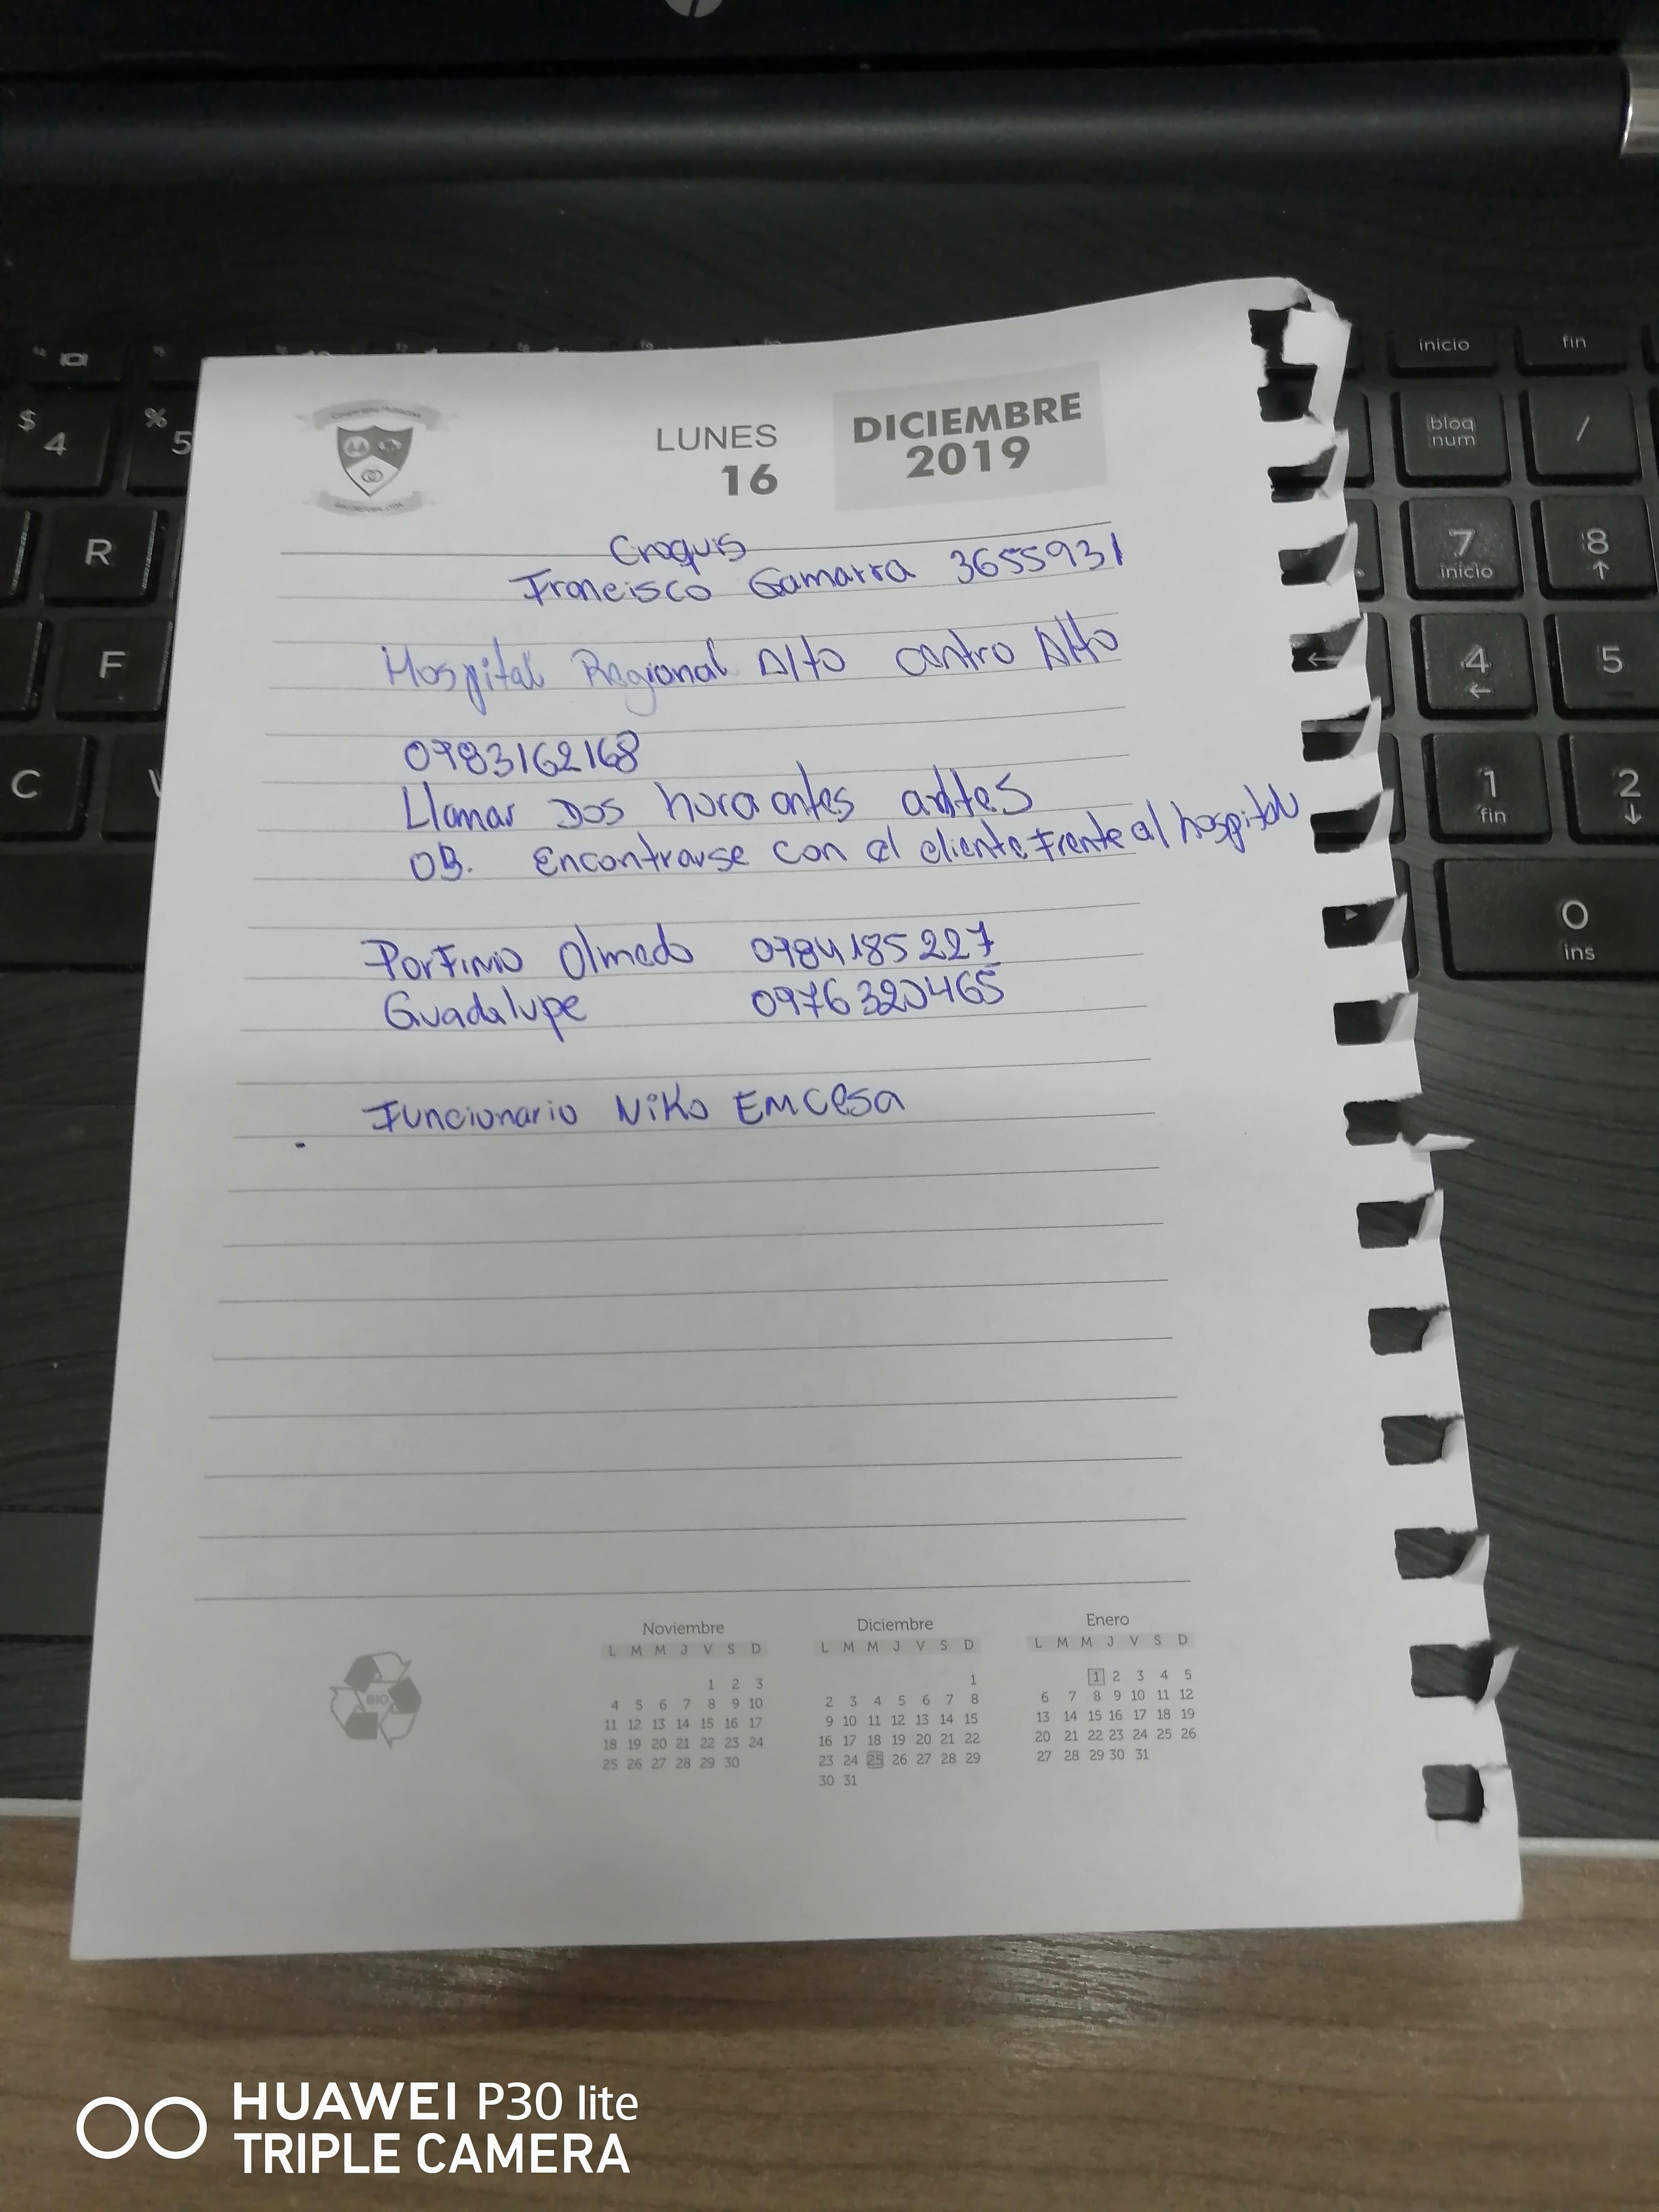 LUNES
16
DICIEMBRE
2019
Croquis
Francisco Gamarra 3655931
Hospital Regional Alto centro Alto
0983162168
Llamar Dos hora antes antes
OB. Encontrarse con el cliente Frente al hospital
Porfirio Olmedo 0984185227
Guadalupe 0976320465
Funcionario Niko EMCESA
Noviembre
L M M J V S D
1 2 3
4 5 6 7 8 9 10
11 12 13 14 15 16 17
18 19 20 21 22 23 24
25 26 27 28 29 30
Diciembre
L M M J V S D
1
2 3 4 5 6 7 8
9 10 11 12 13 14 15
16 17 18 19 20 21 22
23 24 25 26 27 28 29
30 31
Enero
L M M J V S D
1 2 3 4 5
6 7 8 9 10 11 12
13 14 15 16 17 18 19
20 21 22 23 24 25 26
27 28 29 30 31
BIO
$
4
%
5
R
F
C
inicio
fin
bloq
num
/
7
inicio
8
4
5
1
fin
2
0
ins
HUAWEI P30 lite
TRIPLE CAMERA